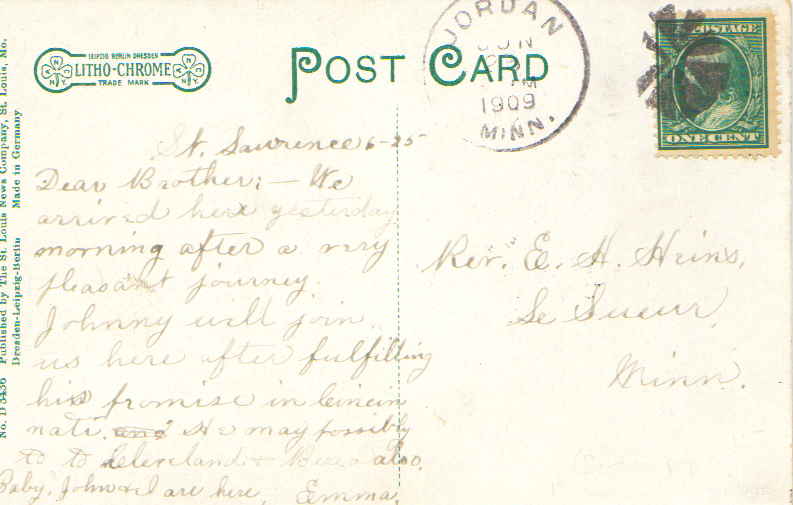 LEIPZIG BERLIN DRESDEN
LITHO-CHROME
TRADE MARK
POST CARD
JORDAN
JUN
1909
MINN.
POSTAGE
ONE CENT
No. D 5436 Published by The St. Louis News Company, St. Louis, Mo.
Dresden-Leipzig-Berlin Made in Germany
St. Lawrence 6-25
Dear Brother:— We
arrived here yesterday
morning after a very
pleasant journey.
Johnny will join
us here after fulfilling
his promise in Cincin
nati. and He may possibly
to Cleveland & also.
Baby, John & I are here, Emma.
Rev. E. H. Heins,
Le Sueur,
Minn.